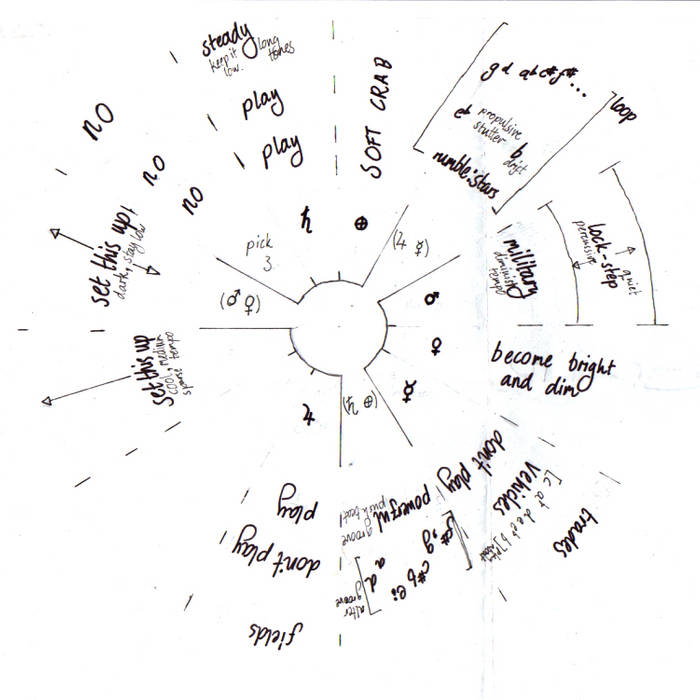 steady
keep it low.
long tones
play
play
SOFT CRAB
g d a b c# f# ...
propulsive stutter
b
drift
rumble: stars
loop
lock-step
percussive
quiet
military
tempo
become bright
and dim
♂
♀
☿
(♃ ☿)
♄
⊕
pick
3
(♂ ♀)
(♄ ⊕)
♃
NO
NO
NO
set this up!
dark, stay low
set this up
cool, medium
sparse tempo
play
don't play
fields
powerful
punk beat!
groove
a
d
alter
groove
f#, g
c# b
don't play
vehicles
trades